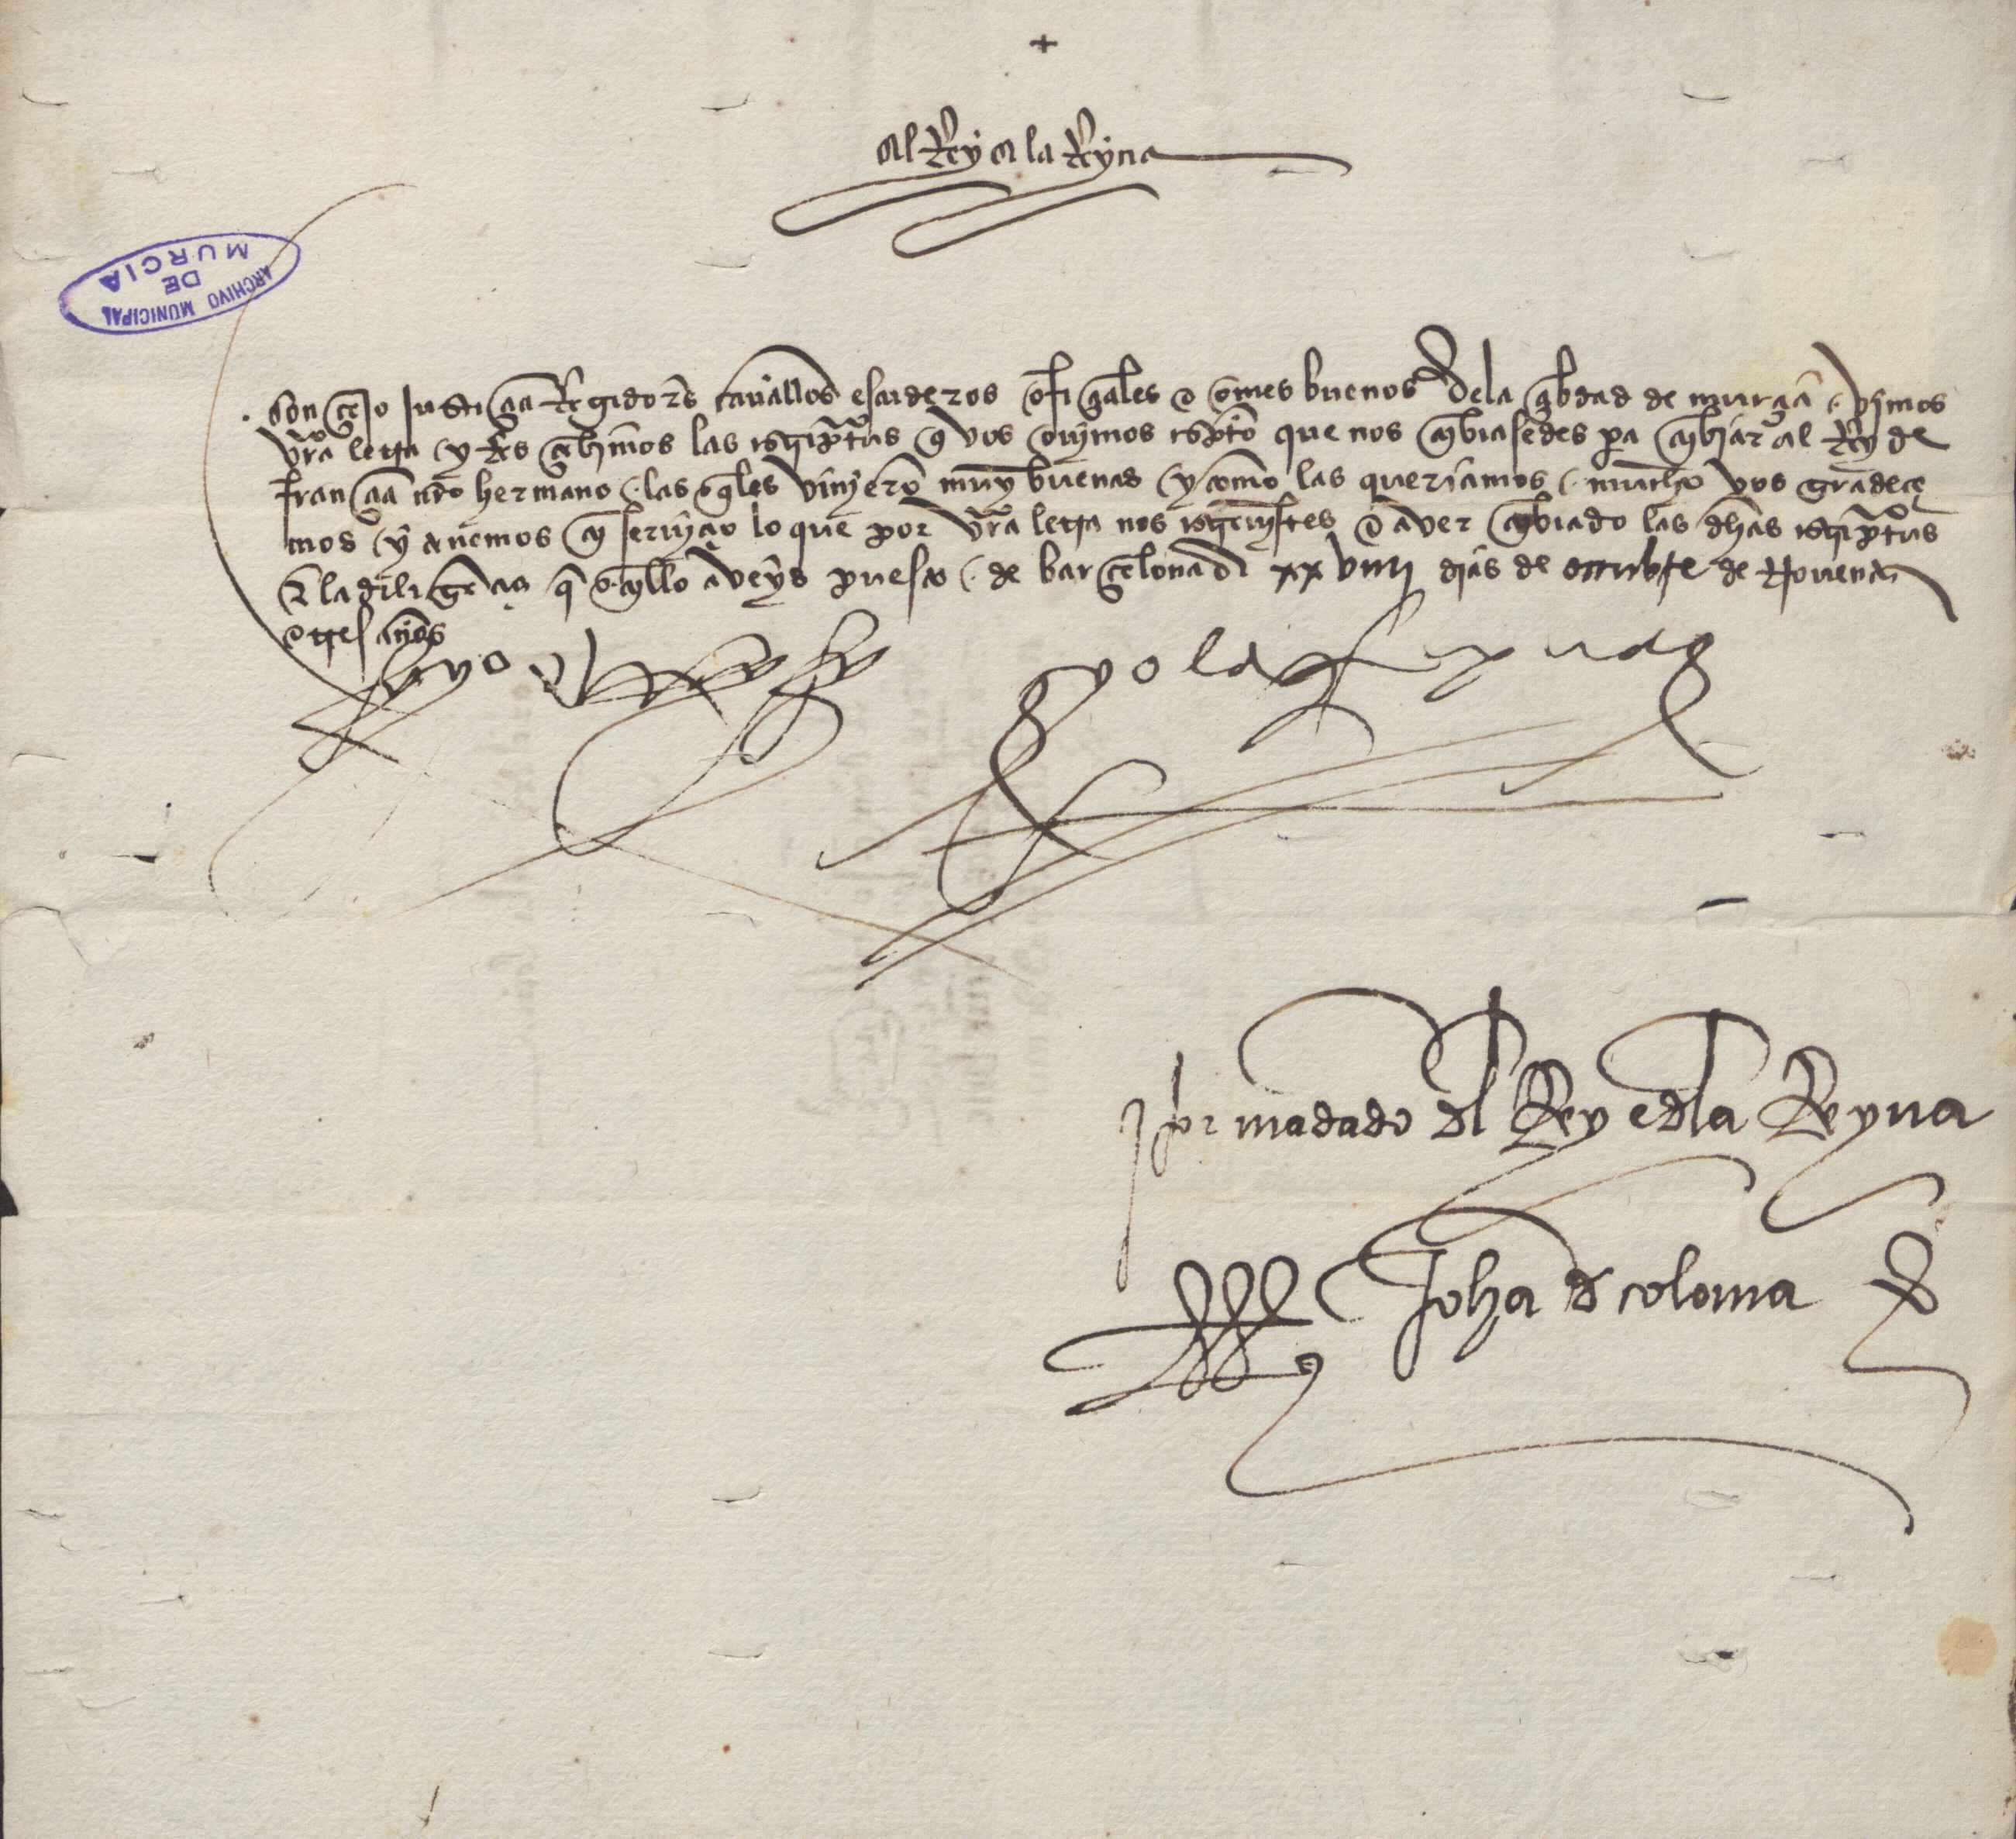 +
El Rey e la Reyna
ARCHIVO MUNICIPAL
DE
MURCIA
Conçejo justiçia Regidores cavalleros escuderos ofiçiales e omes buenos de la çibdad de murçia / vimos
vra letra / y Resçebimos las que vos ovimos que nos enbiasedes pa enbiar al Rey de
françia nro hermano / las quales vinyero muy buenas / y como las queriamos / mucho vos gradeçe
mos / y avemos en serviçio lo que por vra letra nos escrevistes e aver enbiado las dhas
e la diligençia q en ello aveys puesto / de barçelona a xxviiij dias de otubre de Noventa
e tres años
yo el Rey yo la Reyna
por madado dl Rey e dla Reyna
Joha de coloma